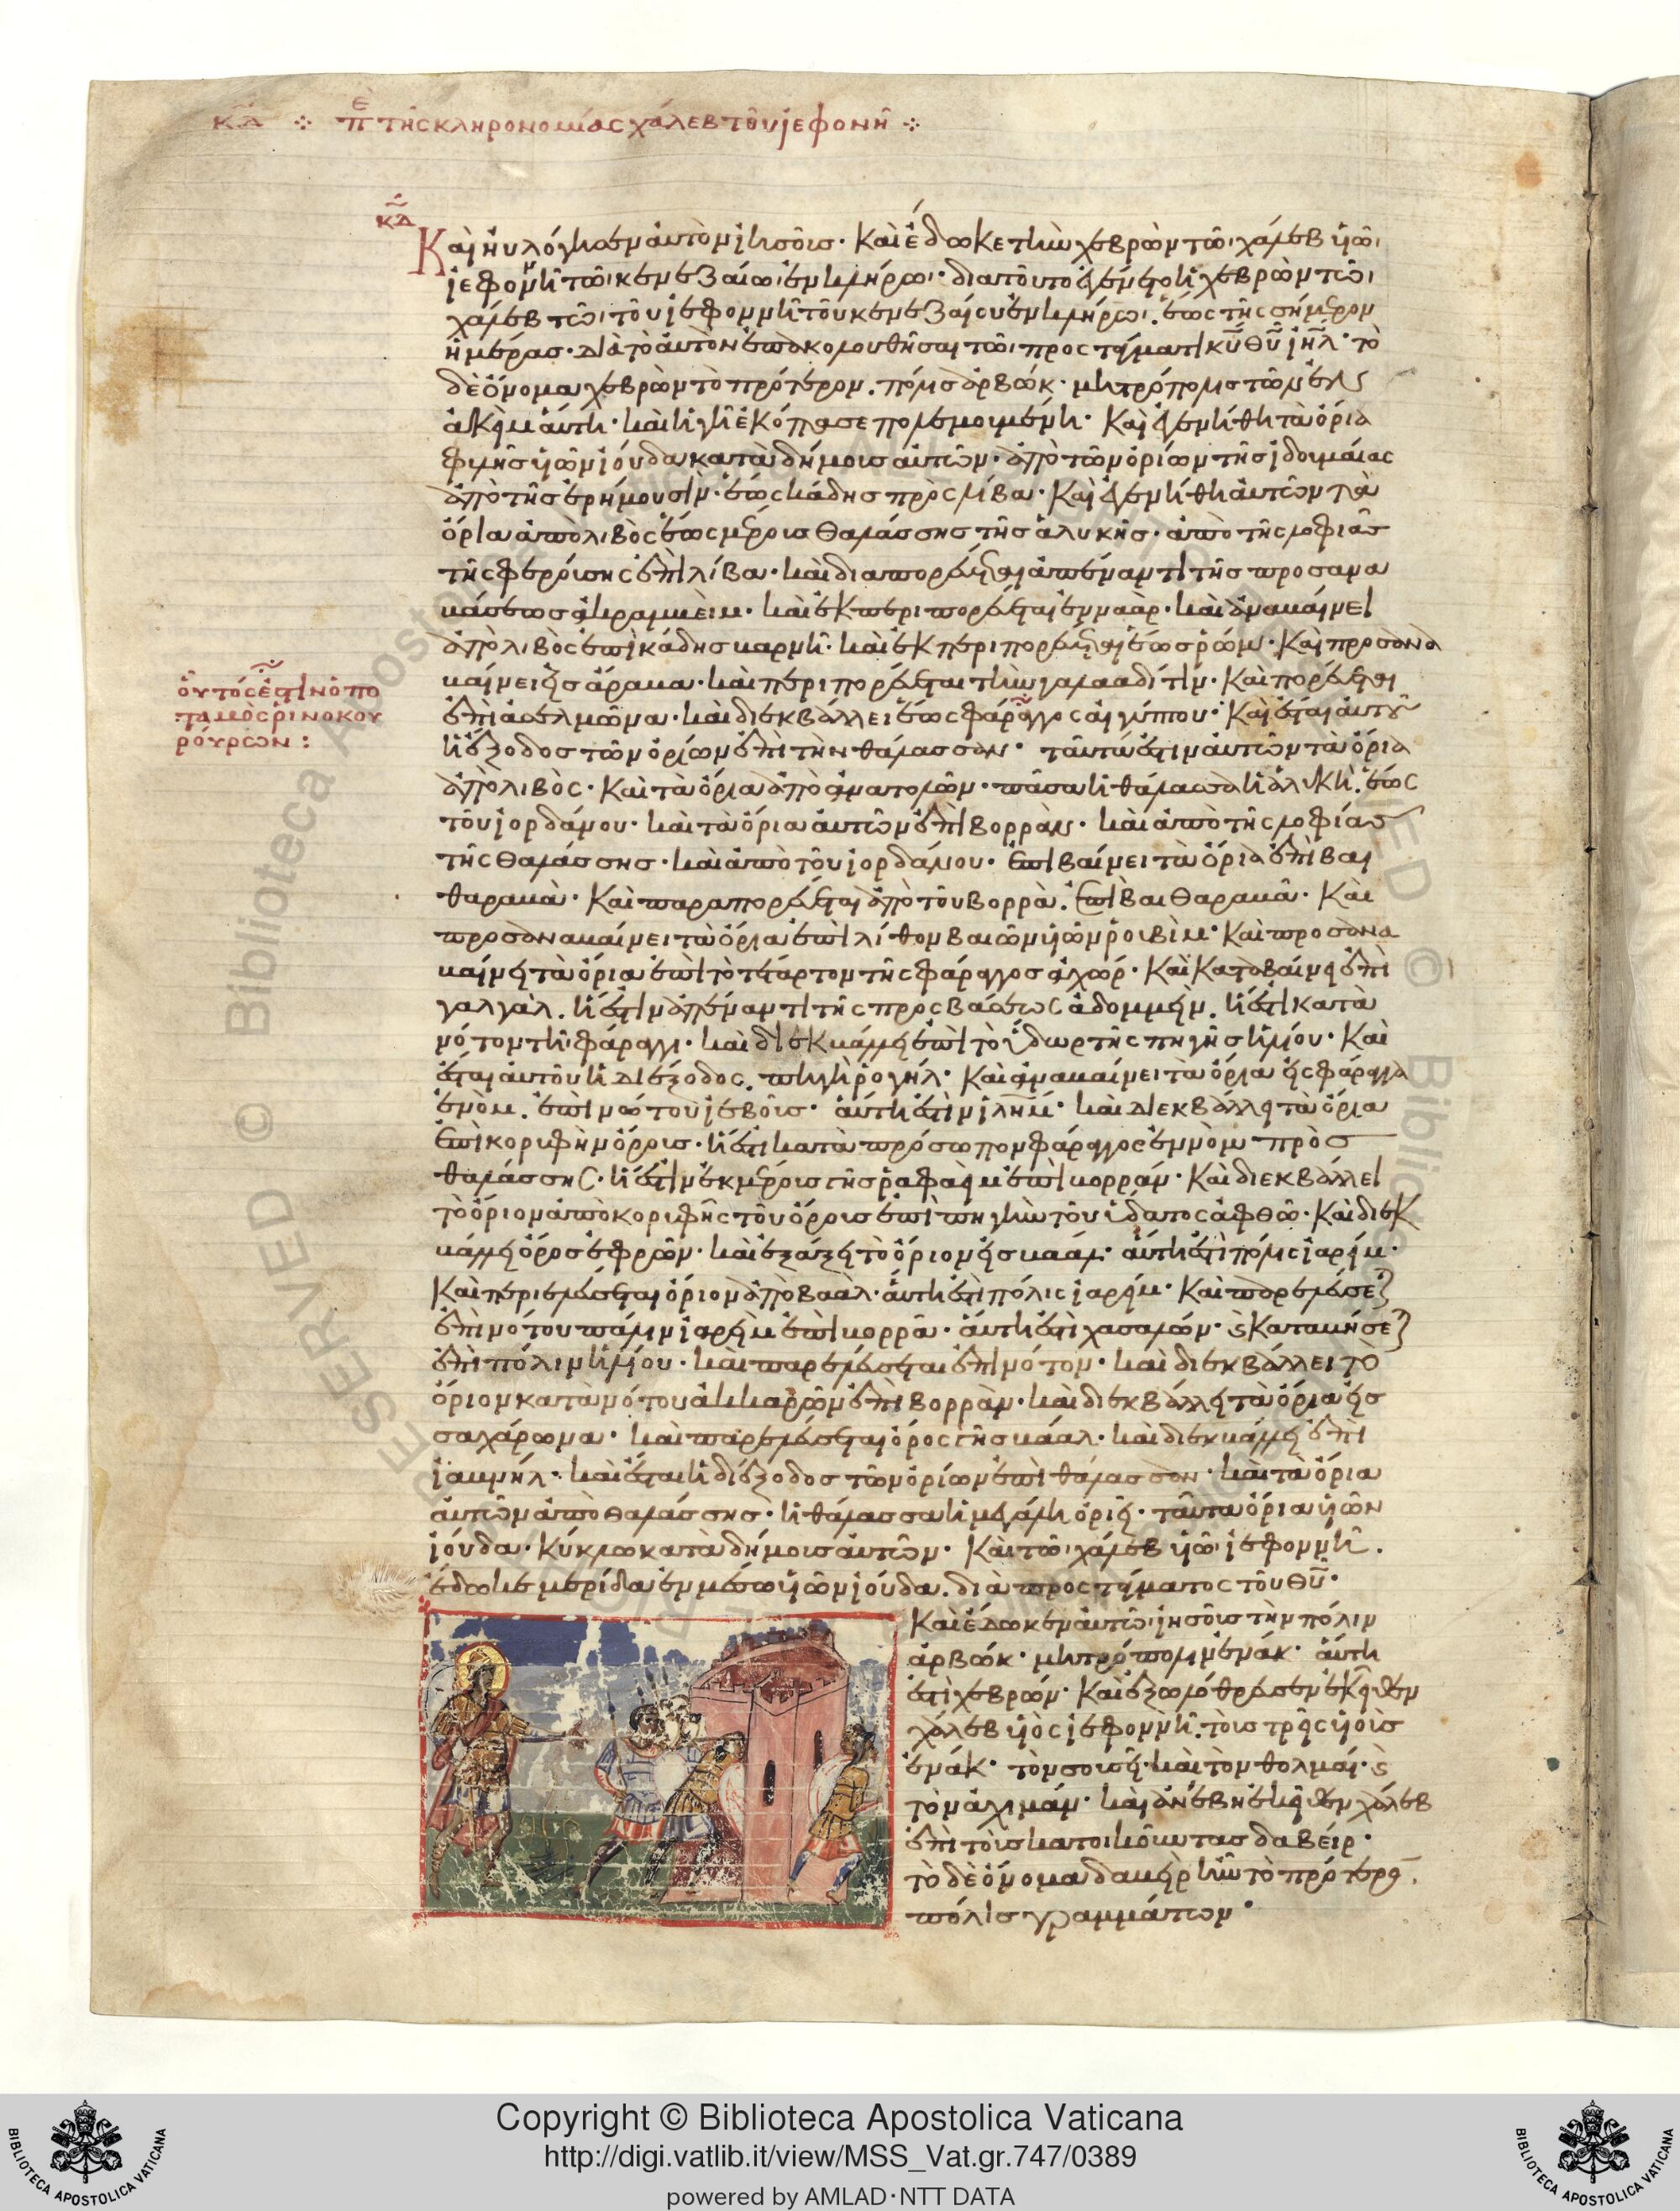 κδ ⁘ ἐπ τῆς κληρονομίας χάλεβ τοῦ ἰεφονῆ ⁘
κδ
Καὶ ηὐλόγησεν αὐτὸν ἰησοῦς· Καὶ ἔδωκε τὴν χεβρὼν τῶ χάλεβ υἱῶ
ἰεφοννῆ τῶ κενεζαίω ἐν κλήρω· διατοῦτο ἐγένετο ἡ χεβρὼν τῶ
χάλεβ τῶ τοῦ ἰεφοννῆ τοῦ κενεζαίου ἐν κλήρω. ἕως τῆς σήμερον
ἡμέρας· Διὰ τὸ αὐτὸν ἐπακολουθῆσαι τῶ προστάγματι κ̅υ̅ θ̅υ̅ ἰη̅λ̅· τὸ
δὲ ὄνομα χεβρὼν τὸ πρότερον. πόλις ἀρβὼκ· μητρόπολις τῶν
αὕτη· καὶ ἡ γῆ ἐκόπασε πολεμουμένη· Καὶ ἐγενήθη τὰ ὅρια
φυλῆς υἱῶν ἰούδα κατὰ δήμους αὐτῶν· ἀπὸ τῶν ὁρίων τῆς ἰδουμαίας
ἀπὸ τῆς ἐρήμου σὶν· ἕως κάδης πρὸς λίβα· Καὶ ἐγενήθη αὐτῶν τὰ
ὅρια ἀπὸ λιβὸς ἕως μέρους θαλάσσης τῆς ἁλυκῆς· ἀπὸ τῆς λοφιᾶς
τῆς φερούσης ἐπὶ λίβα· καὶ διαπορεύεται ἀπέναντι τῆς προσανα
βάσεως ἀκραββεὶμ· καὶ ἐκπεριπορεύεται ἐνναὰρ· καὶ ἀναβαίνει
ἀπὸ λιβὸς ἐπὶ κάδης βαρνῆ· καὶ ἐκπεριπορεύεται ἕως ῥώμ· Καὶ προσανα
βαίνει εἰς ἄραμα· καὶ περιπορεύεται τὴν γαλααδίτιν· Καὶ πορεύεται
ἐπὶ ἀσελμῶνα· καὶ διεκβάλλει ἕως φάραγγος αἰγύπτου· Καὶ ἔσται αὐτοῦ
οὗτός ἐστιν ὁ πο
ταμὸς ῥινοκου
ρούρων :
ἡ ἔξοδος τῶν ὁρίων ἐπὶ τὴν θάλασσαν· ταῦτά ἐστιν αὐτῶν τὰ ὅρια
ἀπὸ λιβὸς· Καὶ τὰ ὅρια ἀπὸ ἀνατολῶν· πᾶσα ἡ θάλασσα ἡ ἁλυκὴ. ἕως
τοῦ ἰορδάνου· καὶ τὰ ὅρια αὐτῶν ἐπὶ βορρᾶν· καὶ ἀπὸ τῆς λοφίας
τῆς θαλάσσης· καὶ ἀπὸ τοῦ ἰορδάνου· ἐπιβαίνει τὰ ὅρια ἐπὶ βαι
θαραβὰ· Καὶ παραπορεύεται ἀπὸ τοῦ βορρᾶ. ἐπὶ βαιθαραβᾶ· Καὶ
προσαναβαίνει τὰ ὅρια ἐπὶ λίθον βαιὼν υἱῶν ῥουβὶμ· Καὶ προσανα
βαίνει τὰ ὅρια ἐπὶ τὸ τέταρτον τῆς φάραγγος ἀχώρ· Καὶ καταβαίνει ἐπὶ
γαλγὰλ. ἥ ἐστιν ἀπέναντι τῆς προσβάσεως ἀδομμὴν. ἥ ἐστι κατὰ
νότον τῆ φάραγγι· καὶ διεκβάλλει ἐπὶ τὸ ὕδωρ τῆς πηγῆς ἡλίου· Καὶ
ἔσται αὐτοῦ ἡ διέξοδος. πηγὴ ῥογήλ· Καὶ ἀναβαίνει τὰ ὅρια εἰς φάραγγα
ἐνὸμ. ἐπὶ νώτου ἰεβοῦς· αὕτη ἐστὶν ἰλη̅μ̅· καὶ διεκβάλλει τὰ ὅρια
ἐπὶ κορυφὴν ὄρους· ἥ ἐστι κατὰ πρόσωπον φάραγγος ἐννὸμ πρὸς
θαλάσσης· ἥ ἐστιν ἐκ μέρους γῆς ῥαφαὶμ ἐπὶ βορρᾶν· Καὶ διεκβάλλει
τὸ ὅριον ἀπὸ κορυφῆς τοῦ ὄρους ἐπὶ πηγὴν τοῦ ὕδατος ἀφθῶ· Καὶ διεκ
βάλλει ὄρος ἐφρῶν· καὶ ἐξάξει τὸ ὅριον εἰς βαάλ· αὕτη ἐστὶ πόλις ἰαρὶμ·
Καὶ περιελεύσεται ὅριον ἀπὸ βαὰλ· αὕτη ἐστὶ πόλις ἰαρὶμ· Καὶ παρελεύσε
ἐπὶ νότου πόλιν ἰαρὶμ ἐπὶ βορρᾶ· αὕτη ἐστὶ χασαλών· Καταβήσε
ἐπὶ πόλιν ἡλίου· καὶ παρελεύσεται ἐπὶ νότον· καὶ διεκβάλλει τὸ
ὅριον κατὰ νότου ἀκκαρῶν ἐπὶ βορρᾶν· καὶ διεκβάλλει τὰ ὅρια εἰς
σαχάρωνα· καὶ παρελεύσεται ὄρος γῆς βαάλ· καὶ διεκβάλλει ἐπὶ
ἰαμνήλ· καὶ ἔσται ἡ διέξοδος τῶν ὁρίων ἐπὶ θάλασσαν· καὶ τὰ ὅρια
αὐτῶν ἀπὸ θαλάσσης· ἡ θάλασσα ἡ μεγάλη ὁριεῖ· ταῦτα ὅρια υἱῶν
ἰούδα· Κύκλω κατὰ δήμους αὐτῶν· Καὶ τῶ χάλεβ υἱῶ ἰεφοννῆ.
ἔδωκε μερίδα ἐν μέσω υἱῶν ἰούδα. διὰ προστάγματος τοῦ θ̅υ̅·
Καὶ ἔδωκεν αὐτῶ ἰησοῦς τὴν πόλιν
ἀρβώκ· μητρόπολιν ἐνάκ· αὕτη
ἐστὶ χεβρών· Καὶ ἐξωλόθρευσεν ἐκεῖθεν
χάλεβ υἱὸς ἰεφοννῆ. τοὺς τρεῖς υἱοὺς
ἐνάκ· τὸν σουσεῖ· καὶ τὸν θολμαί·
τὸν ἀχιμάν· καὶ ἀνέβη ἐκεῖθεν χάλεβ
ἐπὶ τοὺς κατοικοῦντας δαβείρ·
τὸ δὲ ὄνομα δαβεὶρ ἦν τὸ πρότερον.
πόλις γραμμάτων·
Copyright © Biblioteca Apostolica Vaticana
http://digi.vatlib.it/view/MSS_Vat.gr.747/0389
powered by AMLAD·NTT DATA
BIBLIOTECA APOSTOLICA VATICANA
BIBLIOTECA APOSTOLICA VATICANA